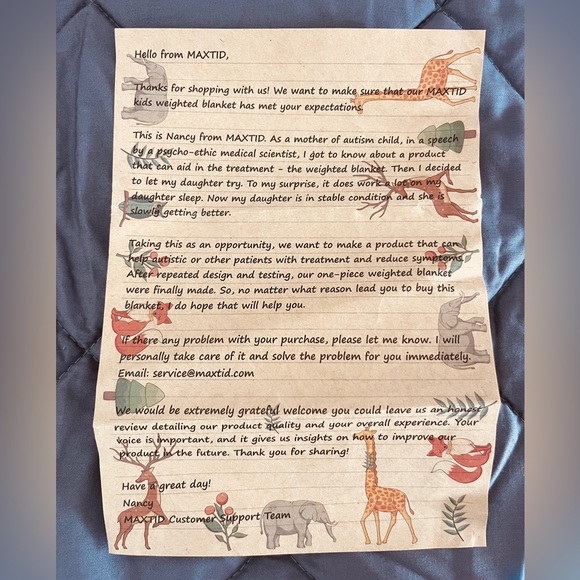 Hello from MAXTID,
Thanks for shopping with us! We want to make sure that our MAXTID
kids weighted blanket has met your expectations.
This is Nancy from MAXTID. As a mother of autism child, in a speech
by a psycho-ethic medical scientist, I got to know about a product
that can aid in the treatment - the weighted blanket. Then I decided
to let my daughter try. To my surprise, it does work a lot on my
daughter sleep. Now my daughter is in stable condition and she is
slowly getting better.
Taking this as an opportunity, we want to make a product that can
help autistic or other patients with treatment and reduce symptoms.
After repeated design and testing, our one-piece weighted blanket
were finally made. So, no matter what reason lead you to buy this
blanket, I do hope that will help you.
If there any problem with your purchase, please let me know. I will
personally take care of it and solve the problem for you immediately.
Email: service@maxtid.com
We would be extremely grateful welcome you could leave us an honest
review detailing our product quality and your overall experience. Your
voice is important, and it gives us insights on how to improve our
product in the future. Thank you for sharing!
Have a great day!
Nancy
MAXTID Customer Support Team